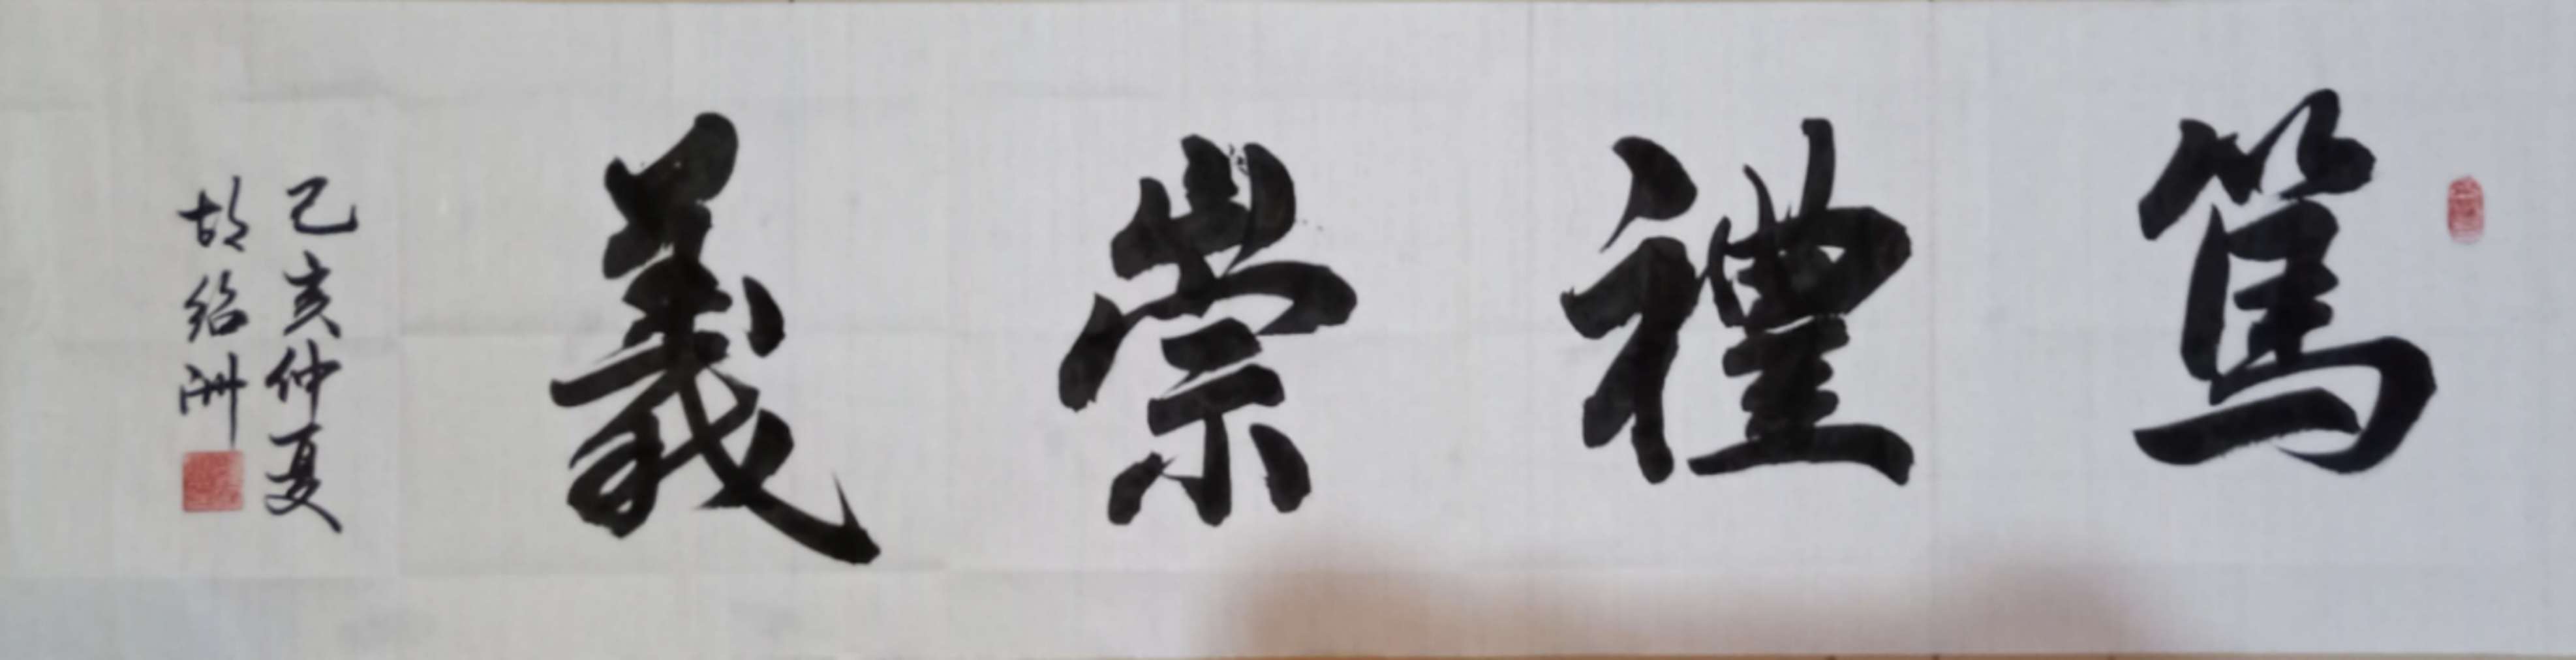 篤禮崇義
己亥仲夏
胡紹洲